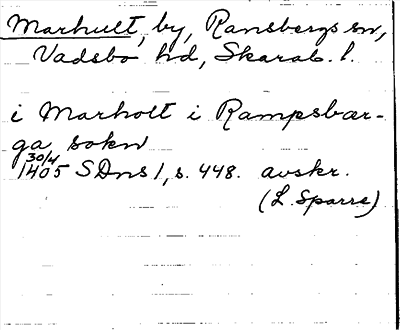 Marhult, by, Ransbergs sn,
Vadsbo hd, Skarab. l.
i Marholt i Rampsbar-
ga sokn
30/4
1405 SDns 1, s. 448. avskr.
(L. Sparre)